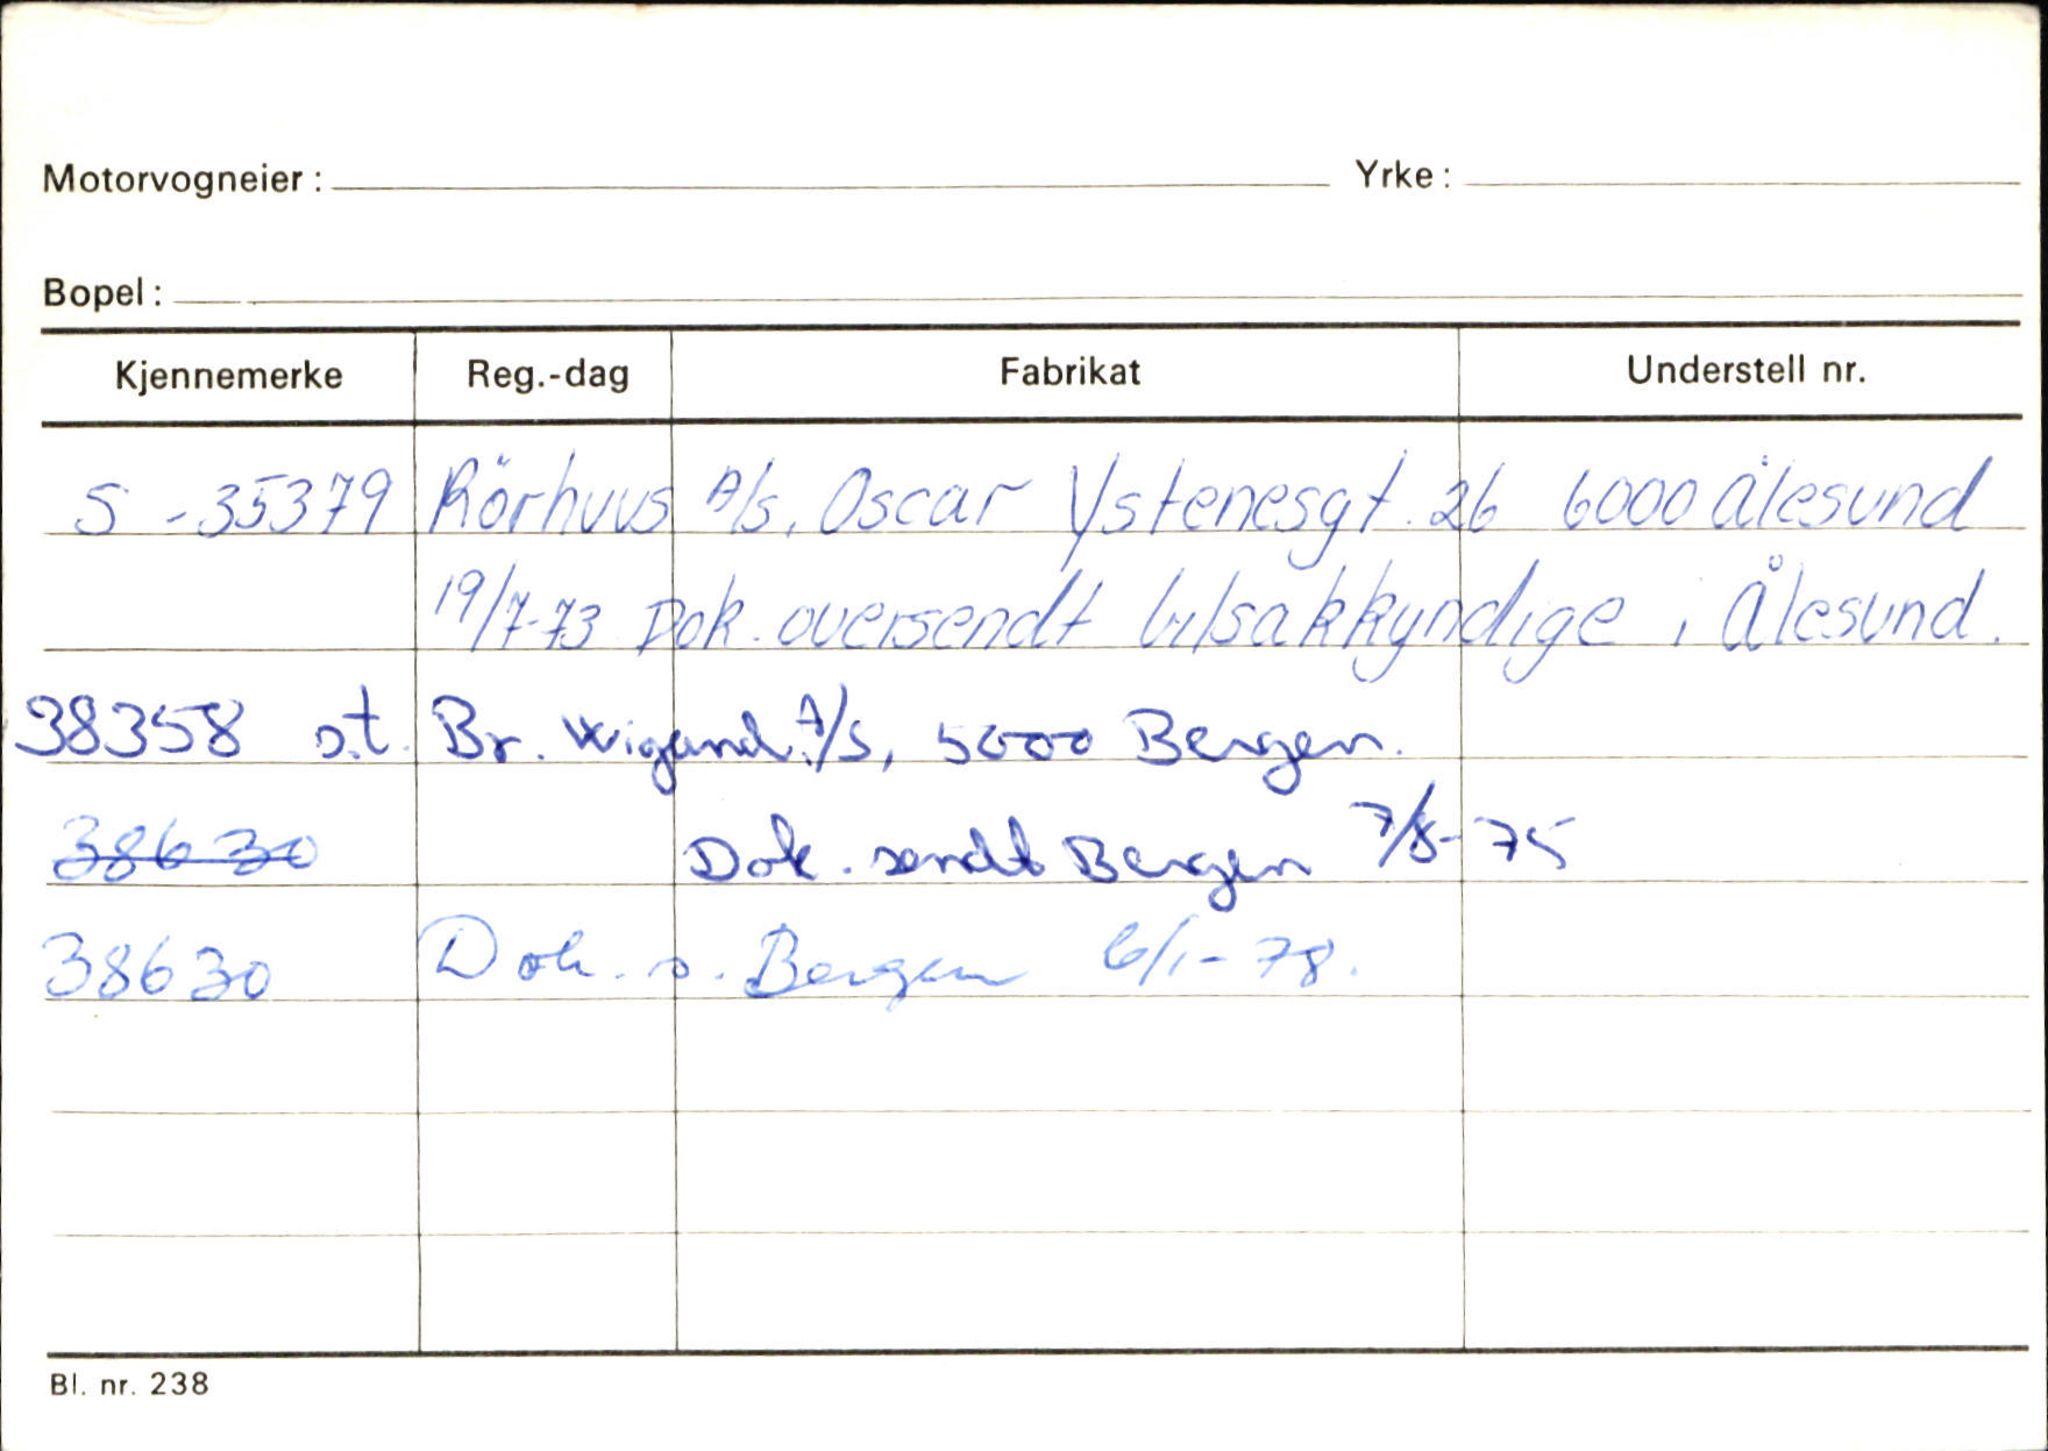 Motorvogneier: Yrke:
Bopel:
Kjennemerke Reg.-dag Fabrikat Understell nr.
S - 35379 Rörhuus A/s. Oscar Ystenesgt. 26 6000 Ålesund
19/7-73 Dok. oversendt bilsakkyndige i Ålesund.
38358 s.t. Br. Wigand A/S, 5000 Bergen.
38630 Dok. sendt Bergen 7/8-75
38630 Dok. s. Bergen 6/1-78.
Bl. nr. 238